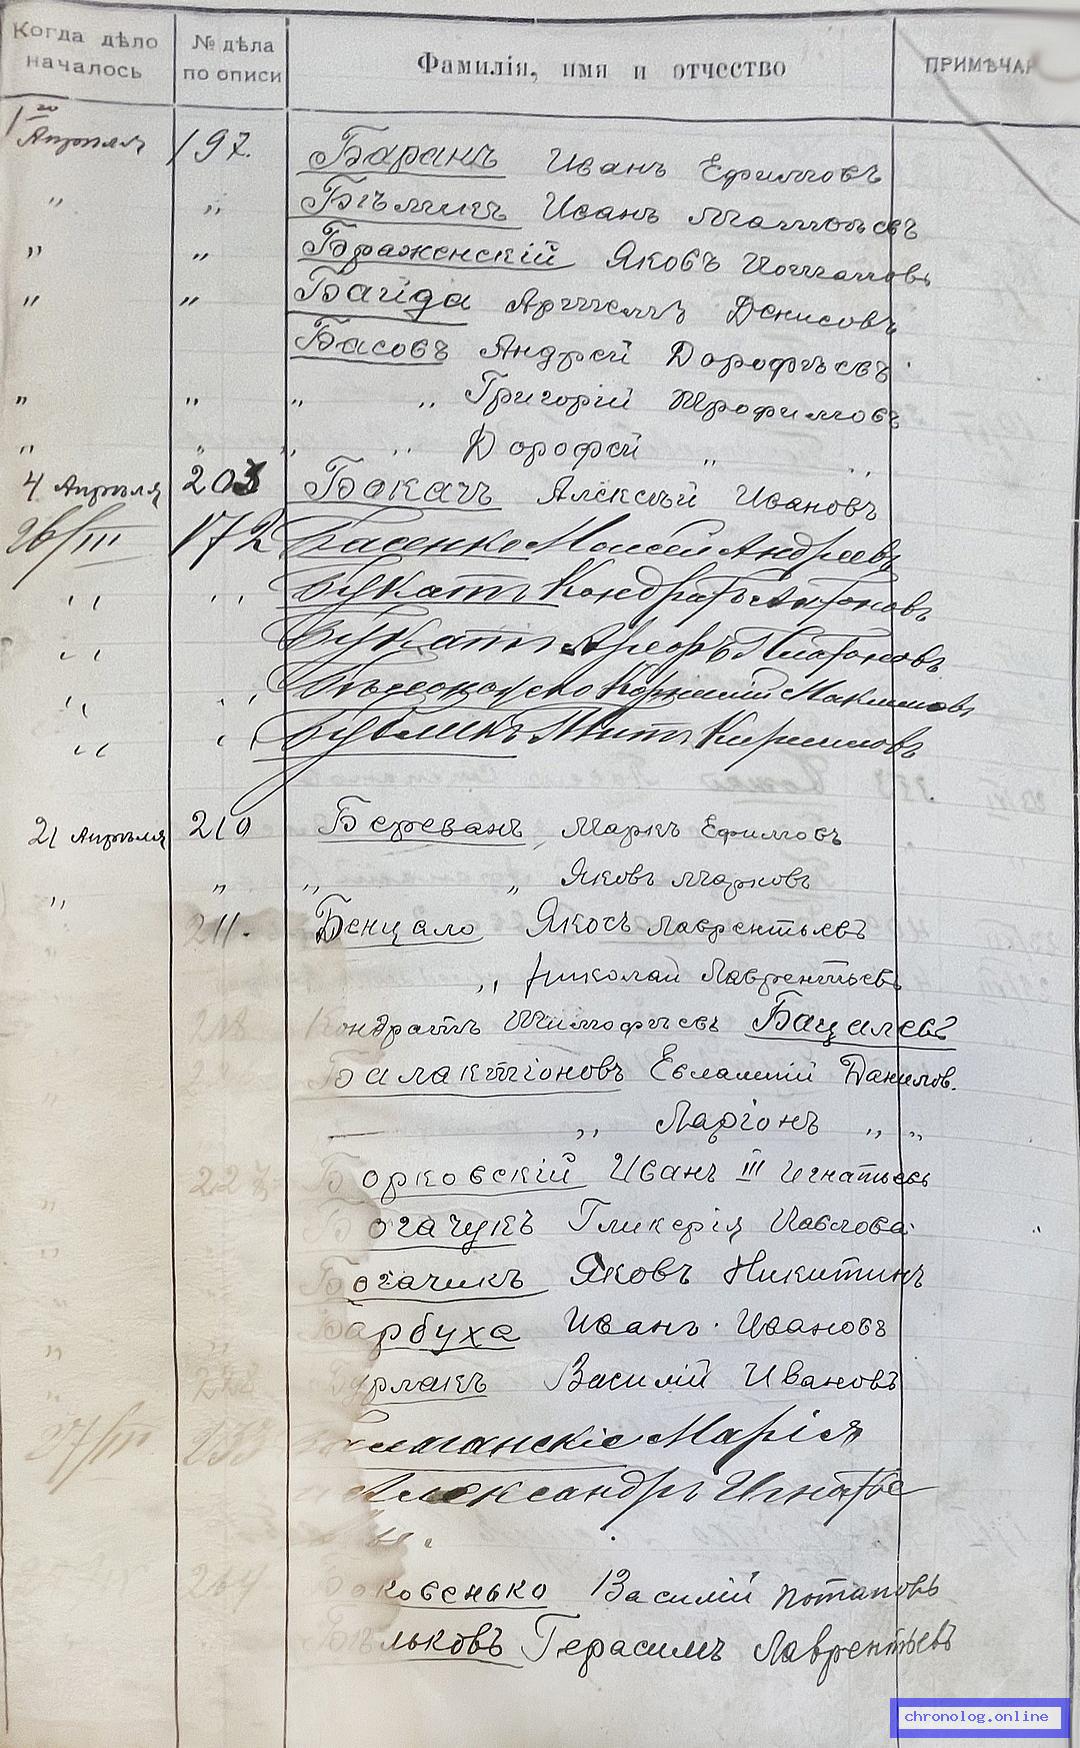 Когда дѣло началось № дѣла по описи Фамилія, имя и отчество ПРИМѢЧА
1го Апрѣля 197. Баранъ Иванъ Ефимовъ
" " Бѣликъ Иванъ Матвѣевъ
" " Браженскій Яковъ Потаповъ
" " Байда Артемъ Денисовъ
Басовъ Андрей Дорофѣевъ
" " " " Григорій Трофимовъ
" " " " Дорофей " "
4 Апрѣля 203 Бокачъ Алексѣй Ивановъ
26/III 172 Басенко Моисей Андреевъ
" " Букатъ Кондратъ Антоновъ
" Букатъ Арефъ Платоновъ
" " Корнилій Максимовъ
" " Бубликъ Титъ Кирилловъ
21 Апрѣля 210 Береванъ Маркъ Ефимовъ
" " " " Яковъ Марковъ
211. Бенцало Яковъ Лаврентьевъ
" Николай Лаврентьевъ
Кондратъ Тимофѣевъ Бацалевъ
Балактіоновъ Евлампій Данилов.
" Ларіонъ " "
227 Борковскій Иванъ III Игнатьевъ
" Богачукъ Гликерія Павлова
" Богачикъ Яковъ Никитинъ
" Барбуха Иванъ Ивановъ
" Бурлакъ Василій Ивановъ
27/III 233 Марія
и Александръ Игнатье
вы.
204 Боковенько Василій Потаповъ
Бѣльковъ Герасимъ Лаврентьевъ
chronolog.online